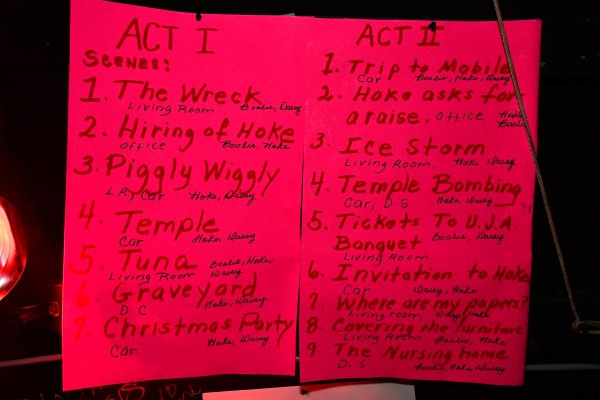 ACT I
SCENES:
1. The Wreck
Living Room Boolie, Daisy
2. Hiring of Hoke
office Boolie, Hoke
3. Piggly Wiggly
L R, Car Hoke, Daisy
4. Temple
Car Hoke, Daisy
5. Tuna Boolie, Hoke
Living Room Daisy
6. Graveyard
D. C. Hoke, Daisy
7. Christmas Party
Car Hoke, Daisy
ACT II
1. Trip to Mobile
Car Boolie, Hoke, Daisy
2. Hoke asks for
a raise. office Hoke
Boolie
3. Ice Storm
Living Room Hoke Daisy
4. Temple Bombing
Car, D S Hoke Daisy
5. Tickets To U.J.A.
Banquet Boolie, Daisy
Living Room
6. Invitation to Hoke
Car Daisy, Hoke
7. Where are my papers?
Living room Daisy, Hoke
8. Covering the furniture
Living Room Boolie, Hoke
9. The Nursing home
D. S. Boolie, Hoke, Daisy